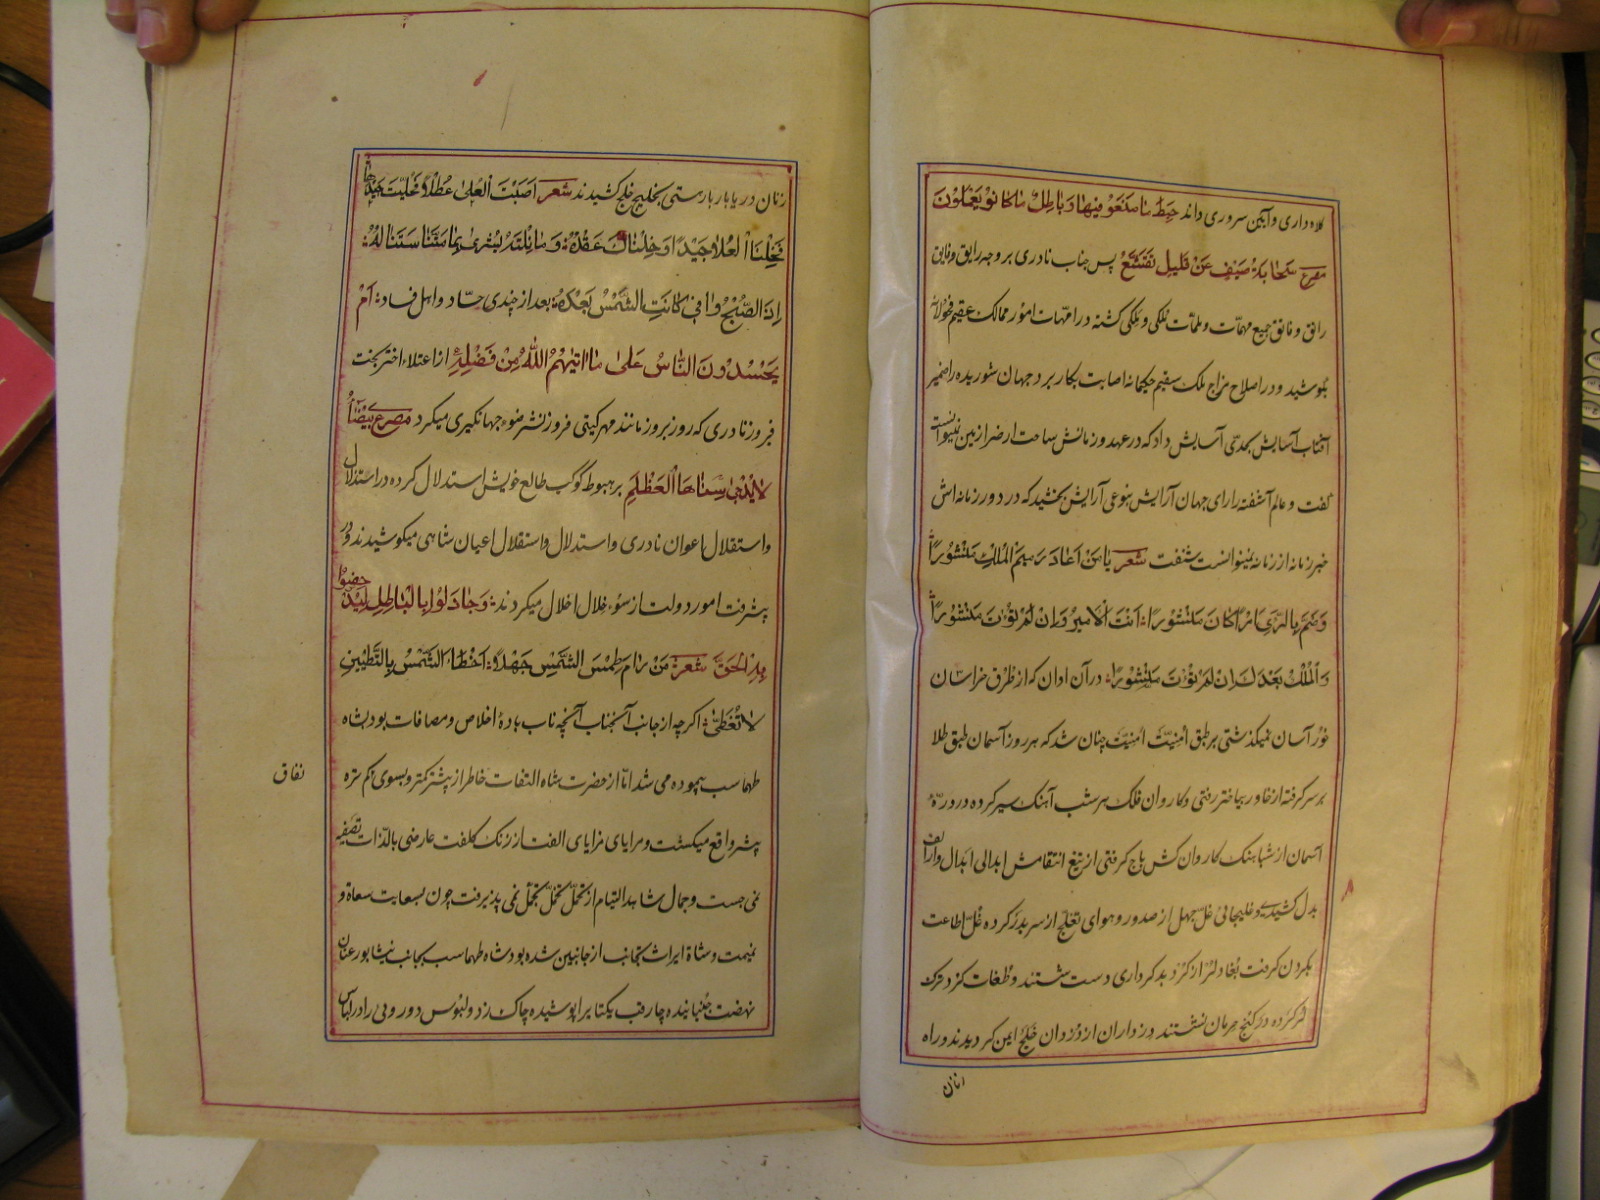 کلاه داری و آیین سروری داند حَبِطَ مَا صَنَعُوْ فِیهَا وَ بَاطِلٌ مَا کَانُوْ یَعْمَلُوْنَ
مصرع سَحَابَةُ صَیْفٍ عَنْ قَلِیلٍ تَقَشَّعُ پس جناب نادری بر وجه رایق و فایق
راتق و فاتق جمیع مهمّات و ملمّات مُلکی و مِلکی گشته در امّهات امور ممالک عقیم
بکوشید و در اصلاح مزاج ملک سقیم حکیمانه اصابت بکار برد جهان شوریده را ضمیر
آفتاب آسایش بحدّی آسایش داد که در عهد و زمانش ساحت ارض را زمین نمیتوانست
گفت و عالم آشفته را رای جهان آرایش بنوعی آرایش بخشید که در دور زمانه اش
خبر زمانه از زمانه نمیتوانست شنفت شعر یَا مَنْ اَعَادَ رَمِیمَ الْمُلْكِ مَنْشُوْرًا
وَضَمَّ بِالرَّاْیِ اَمْرًا کَانَ مَنْشُوْرًا اَنْتَ الْاَمِیْرُ وَاِنْ لَمْ تُؤْتَ مَنْشُوْرًا
وَالْمُلْكُ بَعْدَكَ اِنْ لَمْ تُؤْتَ مَنْشُوْرًا در آن اوان که از طرق خراسان
خور آسان نمیگذشتی بر طبق اُمْنِیَّت اَمْنِیَّت چنان شد که هر روز آسمان طبق طلا
بر سر گرفته از خاور بباختر رفتی و کاروان فلک هر شب آهنگ سیر کرده در دره
آسمان از شباهنگ کاروان کش باج گرفتی از تیغ انتقامش ابدالی ابدال وار
بدل کشیده و غلیجائی غلّ جهل از صدور و هوای تغلّج از سر بدر کرده غُلّ اطاعت
بگردن گرفت بُغاد لُر از کُرد بد کرداری دست شستند و طُغات کُرد ترک
کرده در کنج حرمان نشستند وزداران از دزدان خلج ایمن گردیدند و راه
زنان
زنان در یا بار بار هستی بخلیج خلج کشیدند شعر اَصَبْتَ الْعُلٰی عُطْلاً وَحَلَّیْتَ جِیْدَهَا
فَخِلْنَا الْعُلَا جِیْدًا وَخِلْنَاكَ عِقْدَهُ
اِذَا الصُّبْحُ وَافٰی کَانَتِ الشَّمْسُ بَعْدَهُ بعد از چندی حسّاد و اهل فساد اَمْ
یَحْسُدُوْنَ النَّاسَ عَلٰی مَا اٰتٰیهُمُ اللّٰهُ مِنْ فَضْلِهِ از اعتلاء اختر بخت
فیروز نادری که روز بروز مانند مهر گیتی فروز نشر ضوء جهانگیری میکرد مصرع
برهبوط کوکب طالع خویش استدلال کرده در استذلال
و استقلال اعوان نادری و استدلال و استقلال اعیان شاهی میکوشیدند و در
پیشرفت امور دولت از سوء خلال اخلال میکردند وَجَادَلُوْا بِالْبَاطِلِ لِیُدْحِضُوْا
بِهِ الْحَقَّ شعر مَنْ رَامَ طَمْسَ الشَّمْسِ جَهْلاً اَخْطَا اَلشَّمْسُ بِالتَّطْیِیْنِ
لَا تُغَطّٰی اگر چه از جانب آنجناب آنچه ناب بادهٔ اخلاص و مصافات بود بشاه
طهماسب پیموده می شد امّا از حضرت شاه التفات خاطر از پیشتر کمتر و بسوی کم تره
نفاق
پیشر واقع میگشت و مرایای مزایای الفت از زنگ کلفت عارضی بالذّات تصفیه
نمی جست و جمال شاهد التیام از تحمّل تخمّل تجمّل نمی پذیرفت چون بسعایت سعاة و
نمیمت وشاة ایراث تجانب از جانبین شده بود شاه طهماسب بجانب نیشابور عنان
نهضت جنبانیده چارقب یکتا برا پوشیده چاک زد و لبوس دورویی را در لباس